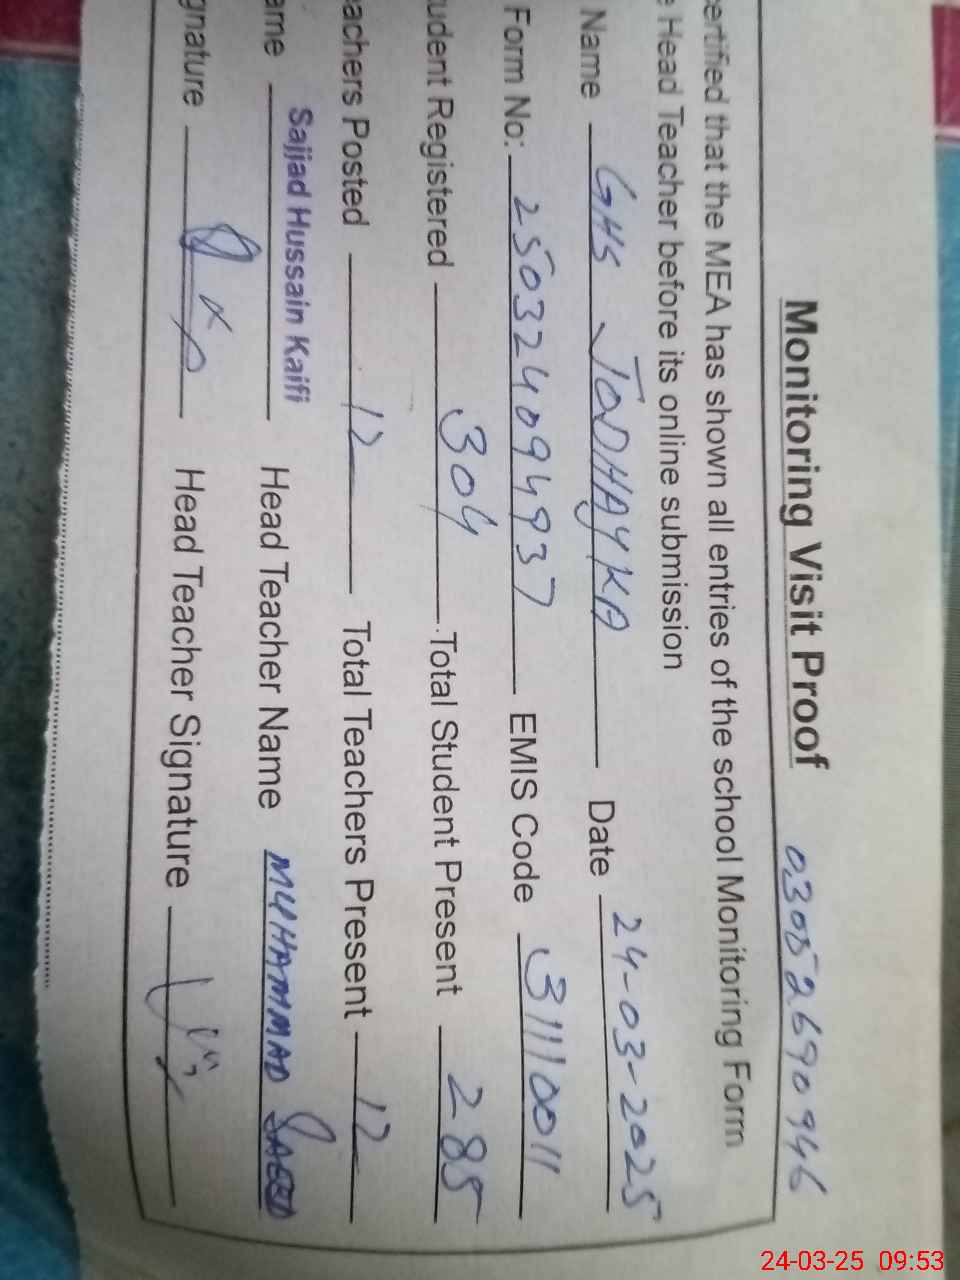 Monitoring Visit Proof 03052690946
ertified that the MEA has shown all entries of the school Monitoring Form
e Head Teacher before its online submission
Name GHS JODHAYKA Date 24-03-2025
Form No: 250324094937 EMIS Code 31110011
udent Registered 304 Total Student Present 285
eachers Posted 12 Total Teachers Present 12
ame Sajjad Hussain Kaifi Head Teacher Name MUHAMMAD SAEED
gnature Head Teacher Signature
24-03-25 09:53